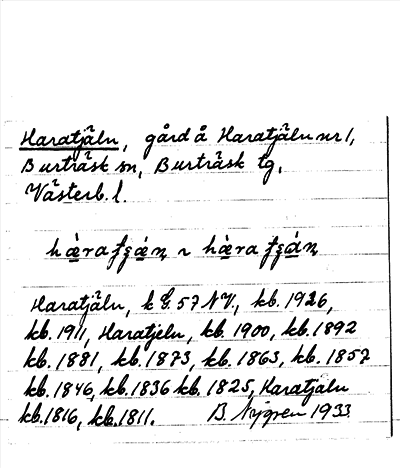 Haratjäln, gård å Haratjäln nr 1,
Burträsk sn, Burträsk tg,
Västerb. l.
Haratjäln, k G. 57 NV., kb. 1926,
kb. 1911, Haratjeln, kb. 1900, kb. 1892
kb. 1881, kb. 1873, kb. 1863, kb. 1857
kb. 1846, kb. 1836 kb. 1825, Haratjäln
kb. 1816, kb. 1811. B. Nygren 1933